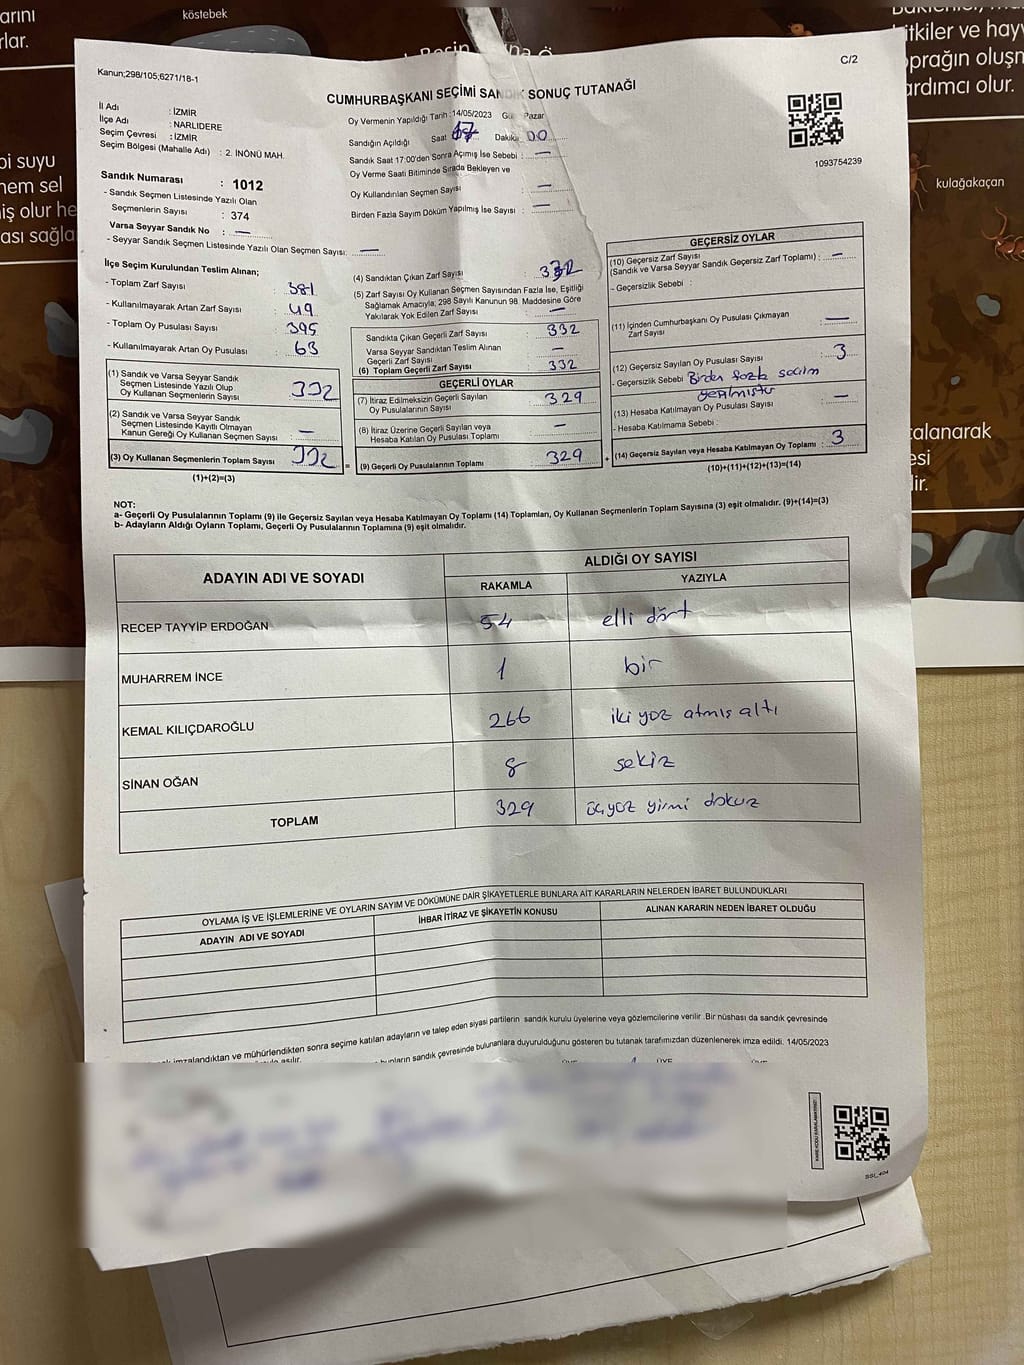 arını
rlar.
köstebek
bitkiler ve hayv
oprağın oluşm
ardımcı olur.
bi suyu
nem sel
iş olur he
ası sağla
kulağakaçan
talanarak
esi
dir.
Kanun;298/105;6271/18-1
C/2
CUMHURBAŞKANI SEÇİMİ SANDIK SONUÇ TUTANAĞI
İl Adı : İZMİR
İlçe Adı : NARLIDERE
Seçim Çevresi : İZMİR
Seçim Bölgesi (Mahalle Adı) : 2. İNÖNÜ MAH.
Sandık Numarası : 1012
- Sandık Seçmen Listesinde Yazılı Olan
Seçmenlerin Sayısı : 374
Varsa Seyyar Sandık No : —
- Seyyar Sandık Seçmen Listesinde Yazılı Olan Seçmen Sayısı: —
Oy Vermenin Yapıldığı Tarih : 14/05/2023 Gün Pazar
Sandığın Açıldığı Saat 17 Dakika 00
Sandık Saat 17:00'den Sonra Açımış İse Sebebi : —
Oy Verme Saati Bitiminde Sırada Bekleyen ve
Oy Kullandırılan Seçmen Sayısı : —
Birden Fazla Sayım Döküm Yapılmış İse Sayısı : —
1093754239
İlçe Seçim Kurulundan Teslim Alınan;
- Toplam Zarf Sayısı : 381
- Kullanılmayarak Artan Zarf Sayısı : 49
- Toplam Oy Pusulası Sayısı : 395
- Kullanılmayarak Artan Oy Pusulası : 63
(1) Sandık ve Varsa Seyyar Sandık
Seçmen Listesinde Yazılı Olup
Oy Kullanan Seçmenlerin Sayısı : 332
(2) Sandık ve Varsa Seyyar Sandık
Seçmen Listesinde Kayıtlı Olmayan
Kanun Gereği Oy Kullanan Seçmen Sayısı : —
(3) Oy Kullanan Seçmenlerin Toplam Sayısı : 332
(1)+(2)=(3)
(4) Sandıktan Çıkan Zarf Sayısı : 332
(5) Zarf Sayısı Oy Kullanan Seçmen Sayısından Fazla İse, Eşitliği
Sağlamak Amacıyla, 298 Sayılı Kanunun 98. Maddesine Göre
Yakılarak Yok Edilen Zarf Sayısı : —
Sandıkta Çıkan Geçerli Zarf Sayısı : 332
Varsa Seyyar Sandıktan Teslim Alınan
Geçerli Zarf Sayısı : —
(6) Toplam Geçerli Zarf Sayısı : 332
GEÇERLİ OYLAR
(7) İtiraz Edilmeksizin Geçerli Sayılan
Oy Pusulalarının Sayısı : 329
(8) İtiraz Üzerine Geçerli Sayılan veya
Hesaba Katılan Oy Pusulası Toplamı : —
= (9) Geçerli Oy Pusulalarının Toplamı : 329
GEÇERSİZ OYLAR
(10) Geçersiz Zarf Sayısı
(Sandık ve Varsa Seyyar Sandık Geçersiz Zarf Toplamı) : —
- Geçersizlik Sebebi :
(11) İçinden Cumhurbaşkanı Oy Pusulası Çıkmayan
Zarf Sayısı : —
(12) Geçersiz Sayılan Oy Pusulası Sayısı : 3
- Geçersizlik Sebebi Birden fazla seçim
yapılmıştır
(13) Hesaba Katılmayan Oy Pusulası Sayısı : —
- Hesaba Katılmama Sebebi :
+ (14) Geçersiz Sayılan veya Hesaba Katılmayan Oy Toplamı : 3
(10)+(11)+(12)+(13)=(14)
NOT:
a- Geçerli Oy Pusulalarının Toplamı (9) ile Geçersiz Sayılan veya Hesaba Katılmayan Oy Toplamı (14) Toplamları, Oy Kullanan Seçmenlerin Toplam Sayısına (3) eşit olmalıdır. (9)+(14)=(3)
b- Adayların Aldığı Oyların Toplamı, Geçerli Oy Pusulalarının Toplamına (9) eşit olmalıdır.
ADAYIN ADI VE SOYADI
ALDIĞI OY SAYISI
RAKAMLA YAZIYLA
RECEP TAYYİP ERDOĞAN 54 elli dört
MUHARREM İNCE 1 bir
KEMAL KILIÇDAROĞLU 266 iki yüz atmış altı
SİNAN OĞAN 8 sekiz
TOPLAM 329 üçyüz yirmi dokuz
OYLAMA İŞ VE İŞLEMLERİNE VE OYLARIN SAYIM VE DÖKÜMÜNE DAİR ŞİKAYETLERLE BUNLARA AİT KARARLARIN NELERDEN İBARET BULUNDUKLARI
ADAYIN ADI VE SOYADI İHBAR İTİRAZ VE ŞİKAYETİN KONUSU ALINAN KARARIN NEDEN İBARET OLDUĞU
imzalandıktan ve mühürlendikten sonra seçime katılan adayların ve talep eden siyasi partilerin sandık kurulu üyelerine veya gözlemcilerine verilir .Bir nüshası da sandık çevresinde
asılır.
bunların sandık çevresinde bulunanlara duyurulduğunu gösteren bu tutanak tarafımızdan düzenlenerek imza edildi. 14/05/2023
ÜYE ÜYE ÜYE
SSL_404